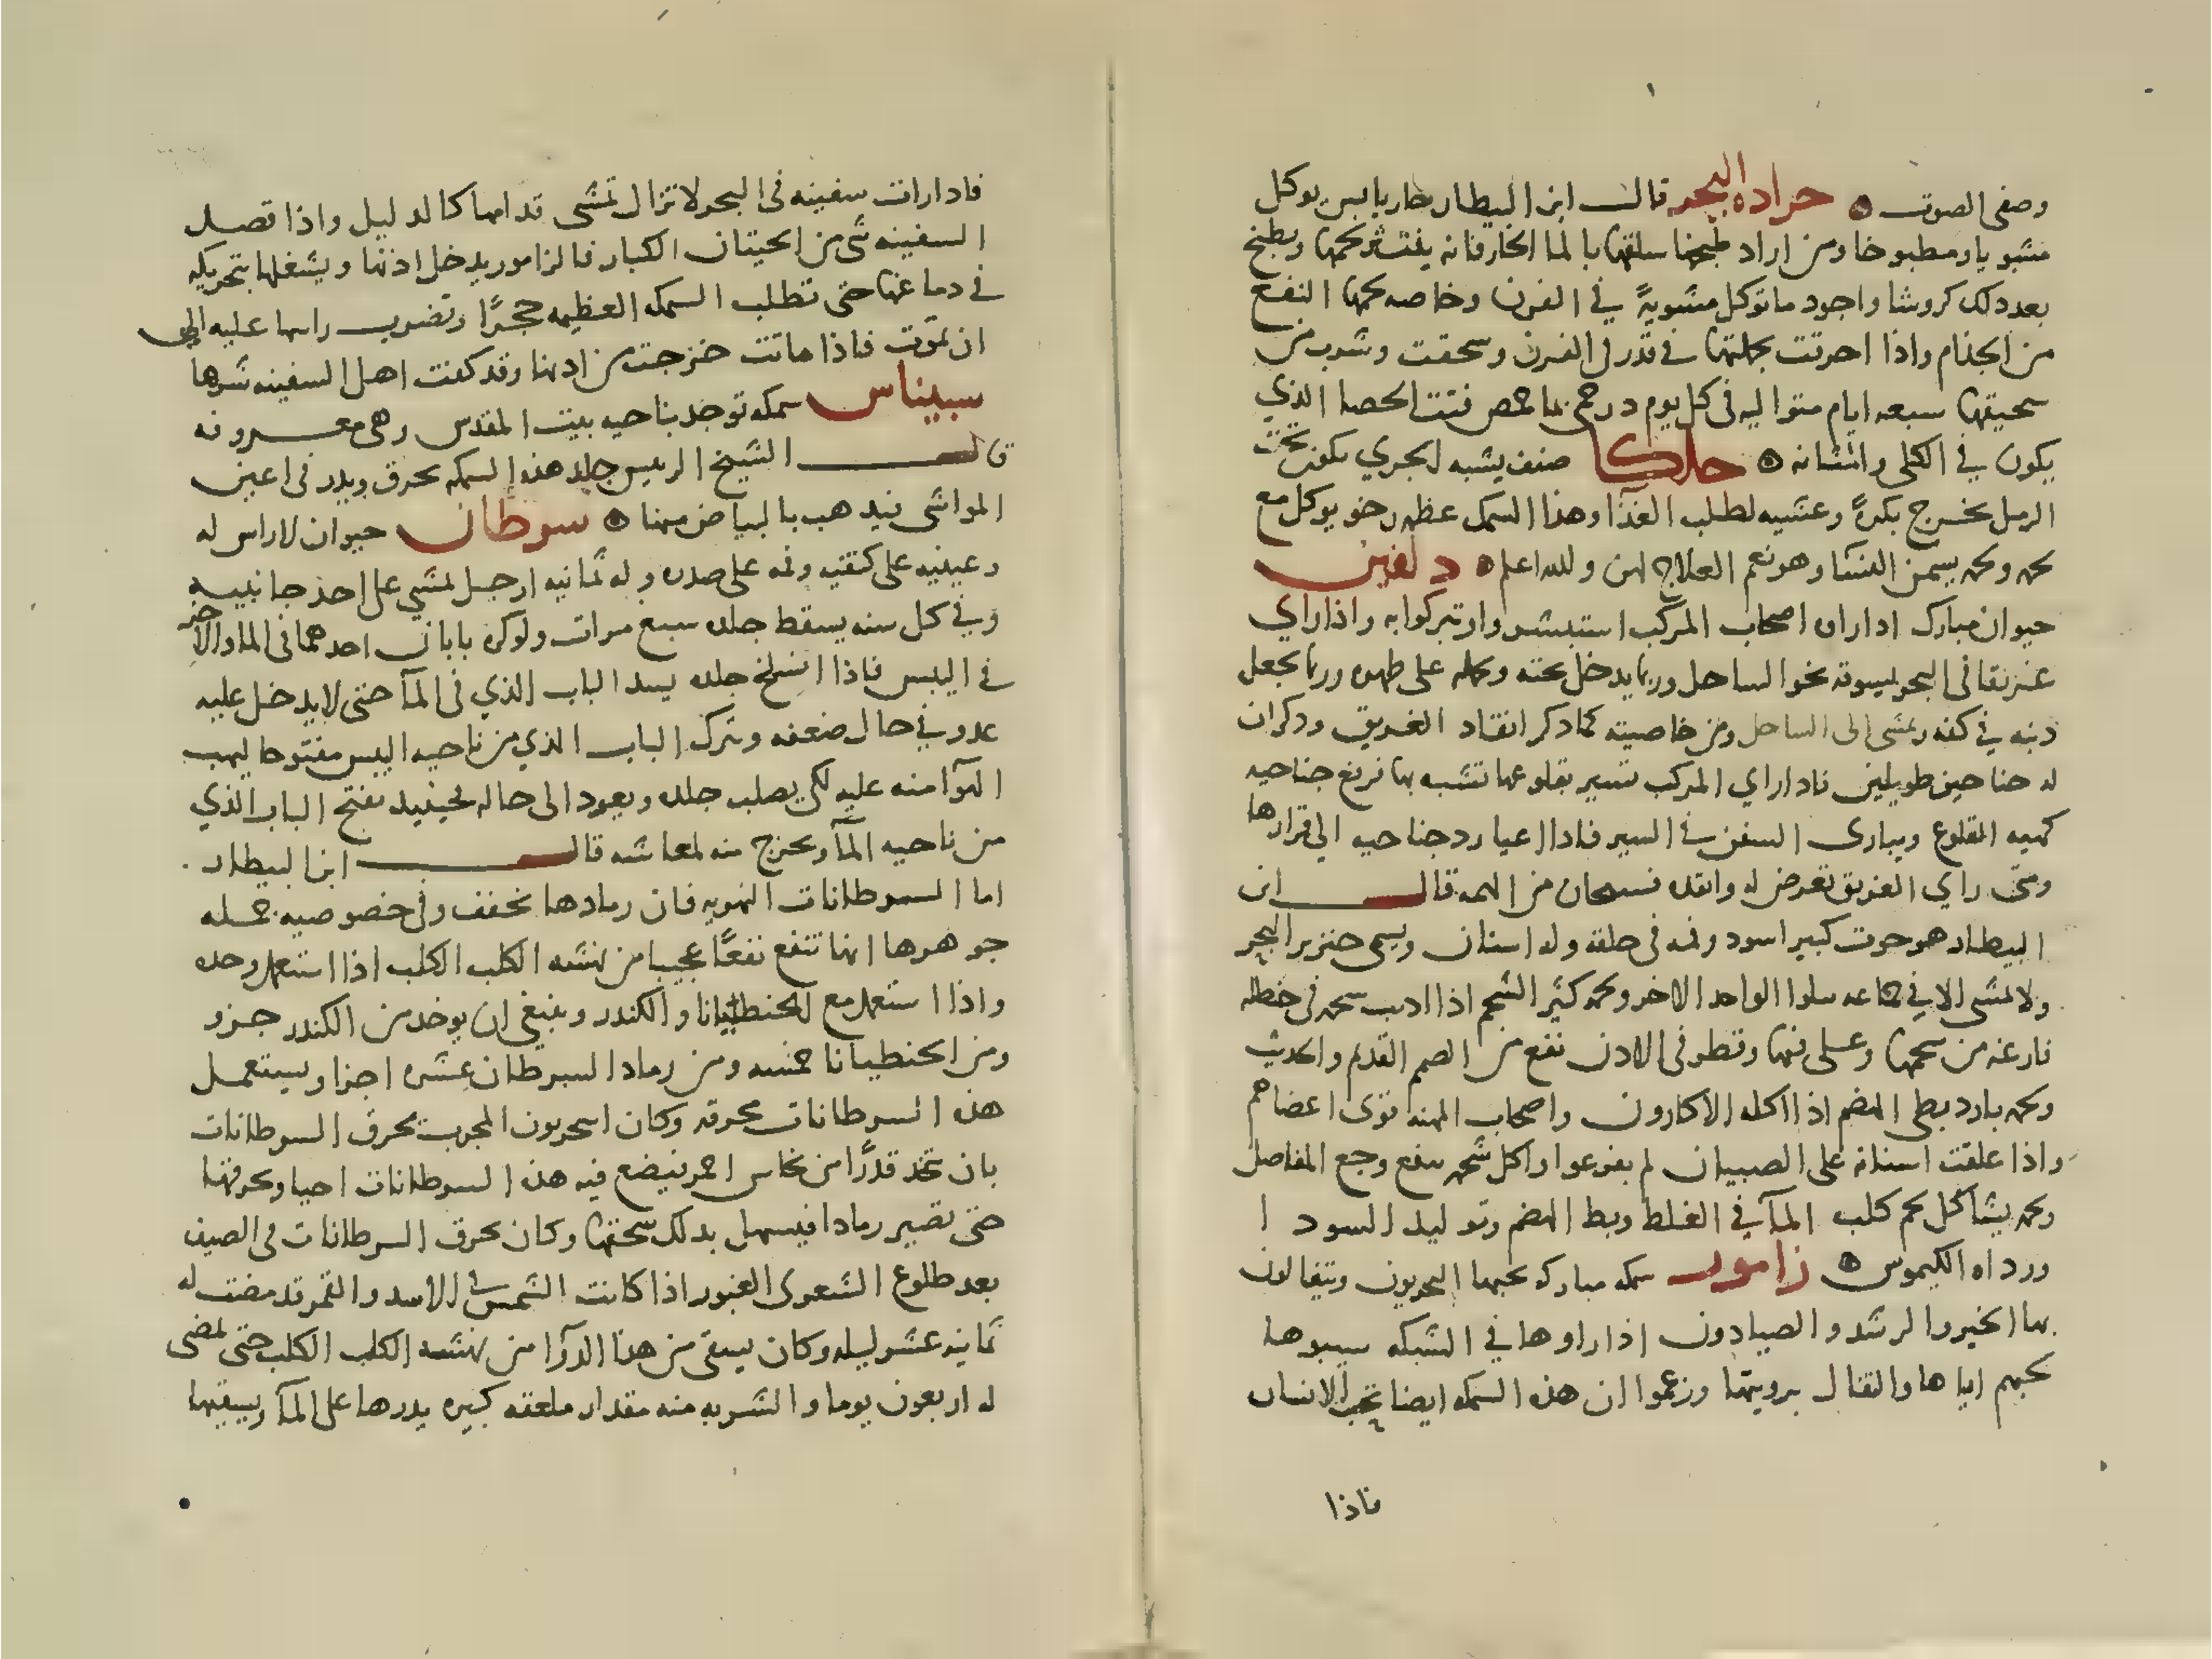 وصفى الصوت ه حراده البحر قال ابن البيطار حار يابس يوكل
مشويا ومطبوخا ومن اراد طبخها سلقها بالماء الحار فانه يقشر لحمها ويطبخ
بعد دلك كروشا واجود ما توكل مشويةً في الفرن وخاصه لحمها النفع
من الجذام واذا احرقت بجملتها فى قدر فى الفرن وسحقت وشرب من
سحيقها سبعه ايام متواليه فى كل يوم درهمى بما حمص فتت الحصا الذي
يكون في الكلى والمثانه ه حلكا صنف يشبه الجري يكون تحت
الرمل يخرج بكرةً وعشيه لطلب الغذآ وهذا السمك عظمه رخو يوكل مع
لحمه ولحمه يسمن النسا وهو نعم العلاج لهن والله اعلم ه دلفين
حيوان مبارك ادا راه اصحاب المركب استبشروا وتبركوا به واذا راي
غريقا فى البحر ليسوقه نحو الساحل وربما يدخل تحته ويحمله على ظهره وربما يجعل
دنبه في كفه ويمشى الى الساحل ومن خاصيته كما دكر انقاد الغريق ودكر ان
له جناحين طويلين فاد اراي المركب تسير بقلوعها تشبه بها فرفع جناحيه
كهيه القلوع ويبارى السفن فى السير فادا اعيا رد جناحيه الى قرارها
ومتى راي الغريق تعرض له وانقده فسبحان من الهمه قال ابن
البيطار هو حوت كبير اسود وفمه فى حلقه وله اسنان ويسمى خنزير البحر
ولا يمشى الا في جماعه يتلوا الواحد الاخر ولحمه كثير الشحم اذا اديب شحمه فى حنظله
فارغه من شحمها وغلى فيها وقطر فى الادن نفع من الصمم القديم والحديث
ولحمه بارد بطى الهضم اذا اكله الاكارون واصحاب المهنه قوى اعضاهم
واذا علقت اسنانه على الصبيان لم يفزعوا واكل شحمه ينفع وجع المفاصل
ولحمه يشاكل لحم كلب المآ في الغلظ وبط الهضم وتوليد السودا
ورداه الكيموس ه زامور سمكه مباركه يحبها البحريون ويتفالون
بها الخير والرشد والصيادون اذا راوها في الشبكه سيبوها
لحبهم اياها والقتال برويتها وزعموا ان هذه السمكه ايضا تحب الانسان
فاذا
فادا رات سفينه فى البحر لا تزال تمشى قدامها كالدليل واذا قصد
السفينه شى من الحيتان الكبار فالزامور يدخل اذنها ويشغلها بتحريكه
فى دماغها حتى تطلب السمكه العظيمه حجرًا وتضرب راسها عليه الى
ان تموت فاذا ماتت خرجت من ادنها وقد كفت اهل السفينه شرها
سبيناس سمكه توجد بناحيه بيت المقدس وهى معروفه
قال الشيخ الرييس جلد هذه السمكه يحرق ويدر فى اعين
المواشى فيدهب بالبياض منها ه سرطان حيوان لا راس له
وعينيه على كتفيه وفمه على صدره وله ثمانيه ارجل يمشي على احد جانبيه
وفي كل سنه يسقط جلده سبع مرات ولوكره بابان احدهما فى الما والاخر
فى اليبس فاذا انسلخ جلده يسد الباب الذي فى المآ حتى لا يدخل عليه
عدو في حال ضعفه ويترك الباب الذي من ناحيه اليبس مفتوحا ليهب
الهوآ منه عليه لكى يصلب جلده ويعود الى حاله فحينيد يفتح الباب الذي
من ناحيه المآ ويخرج منه لمعاشه قال ابن البيطار
اما السرطانات النهريه فان رمادها يخفف وفى خصوصيه جمله
جوهرها انها تنفع نفعًا عجيبا من نهشه الكلب الكلب اذا استعمل وحده
واذا استعمل مع الجنطيانا والكندر وينبغى ان يوخد من الكندر جزو
ومن الجنطيانا خمسه ومن رماد السرطان عشره اجزا ويستعمل
هذه السرطانات محرقه وكان اسحريون المجرب يحرق السرطانات
بان يتخد قدرًا من نحاس احمر فيضع فيه هذه السرطانات احيا ويحرقها
حتى تصير رمادا فيسهل بدلك سحقها وكان يحرق السرطانات فى الصيف
بعد طلوع الشعرى العبور اذا كانت الشمس فى الاسد والقمر قد مضت له
ثمانيه عشر ليله وكان يسقى من هذا الدوآ من نهشه الكلب الكلب حتى يمضى
له اربعون يوما والشربه منه مقدار ملعقه كبيره يدرها على المآ ويسقيها